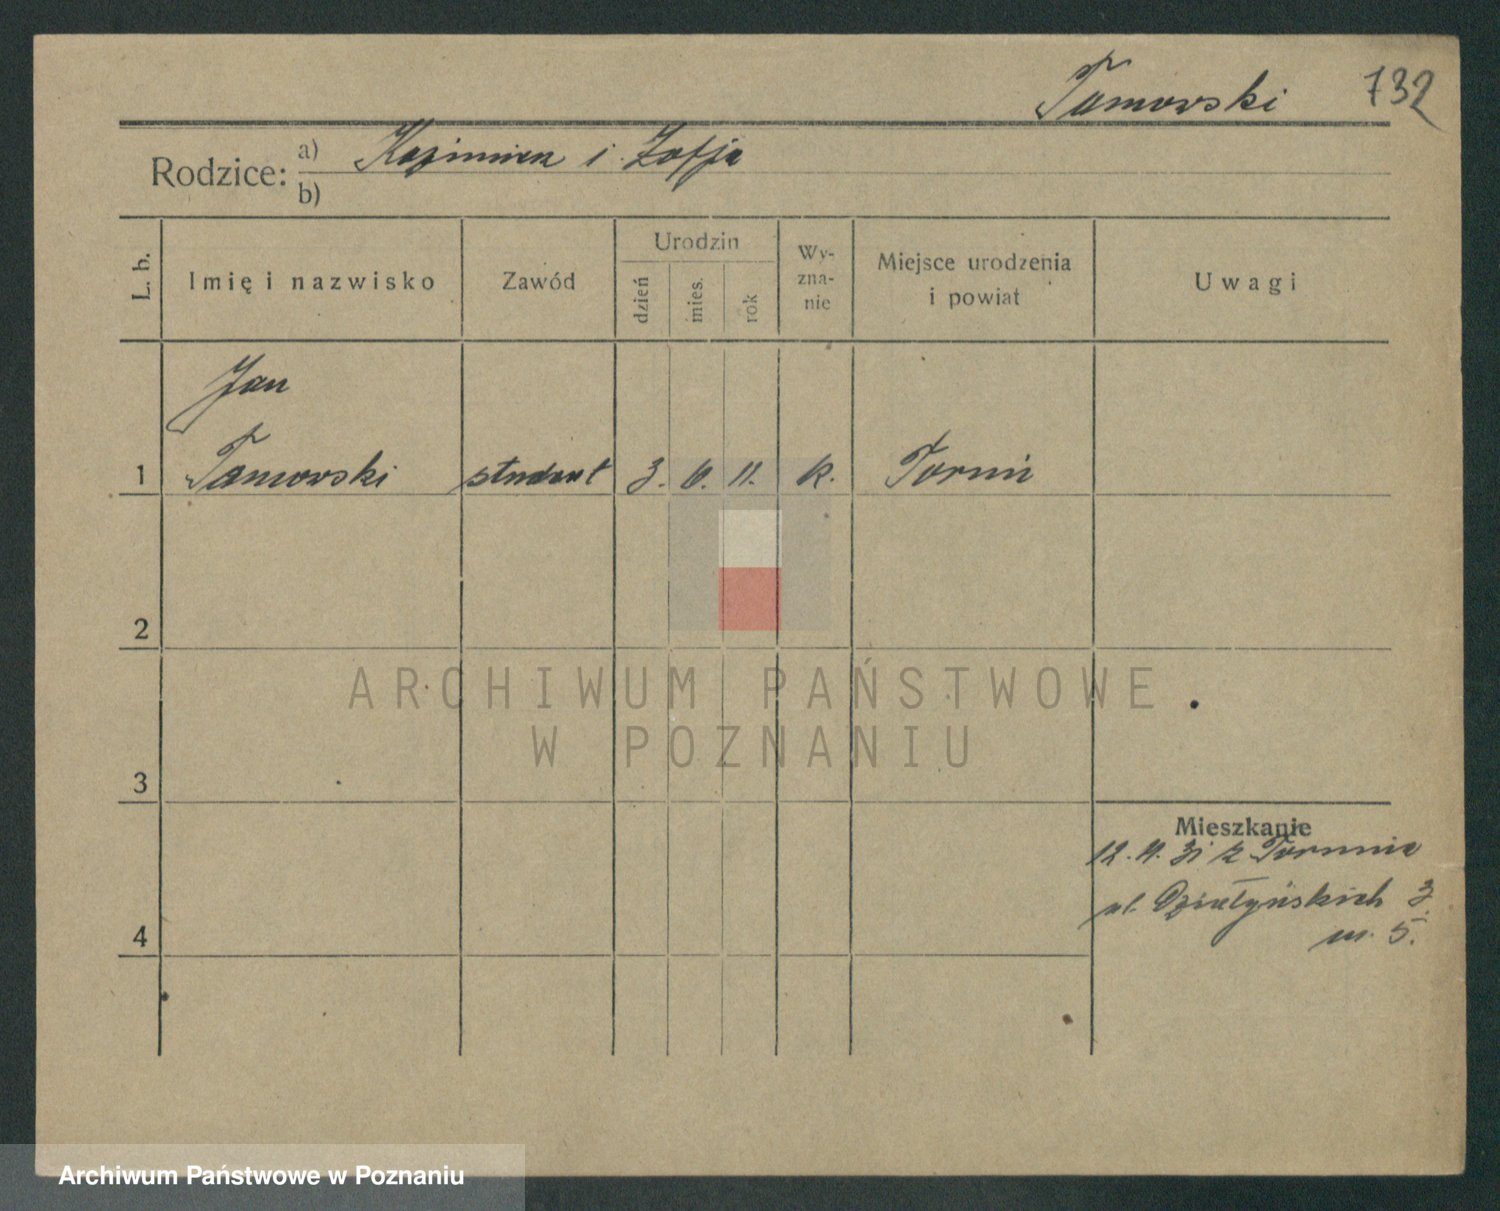 Tomowski 732
Rodzice: a) Kazimierz i Zofja
b)
L. b. Imię i nazwisko Zawód Urodzin dzień mies. rok Wy-zna-nie Miejsce urodzenia i powiat Uwagi
Jan
1 Tomowski student 3. 6. 11. k. Toruń
2
3
4
Mieszkanie
12. 4. 31 z Torunia
ul. Działyńskich 3
m. 5.
ARCHIWUM PAŃSTWOWE
W POZNANIU
Archiwum Państwowe w Poznaniu